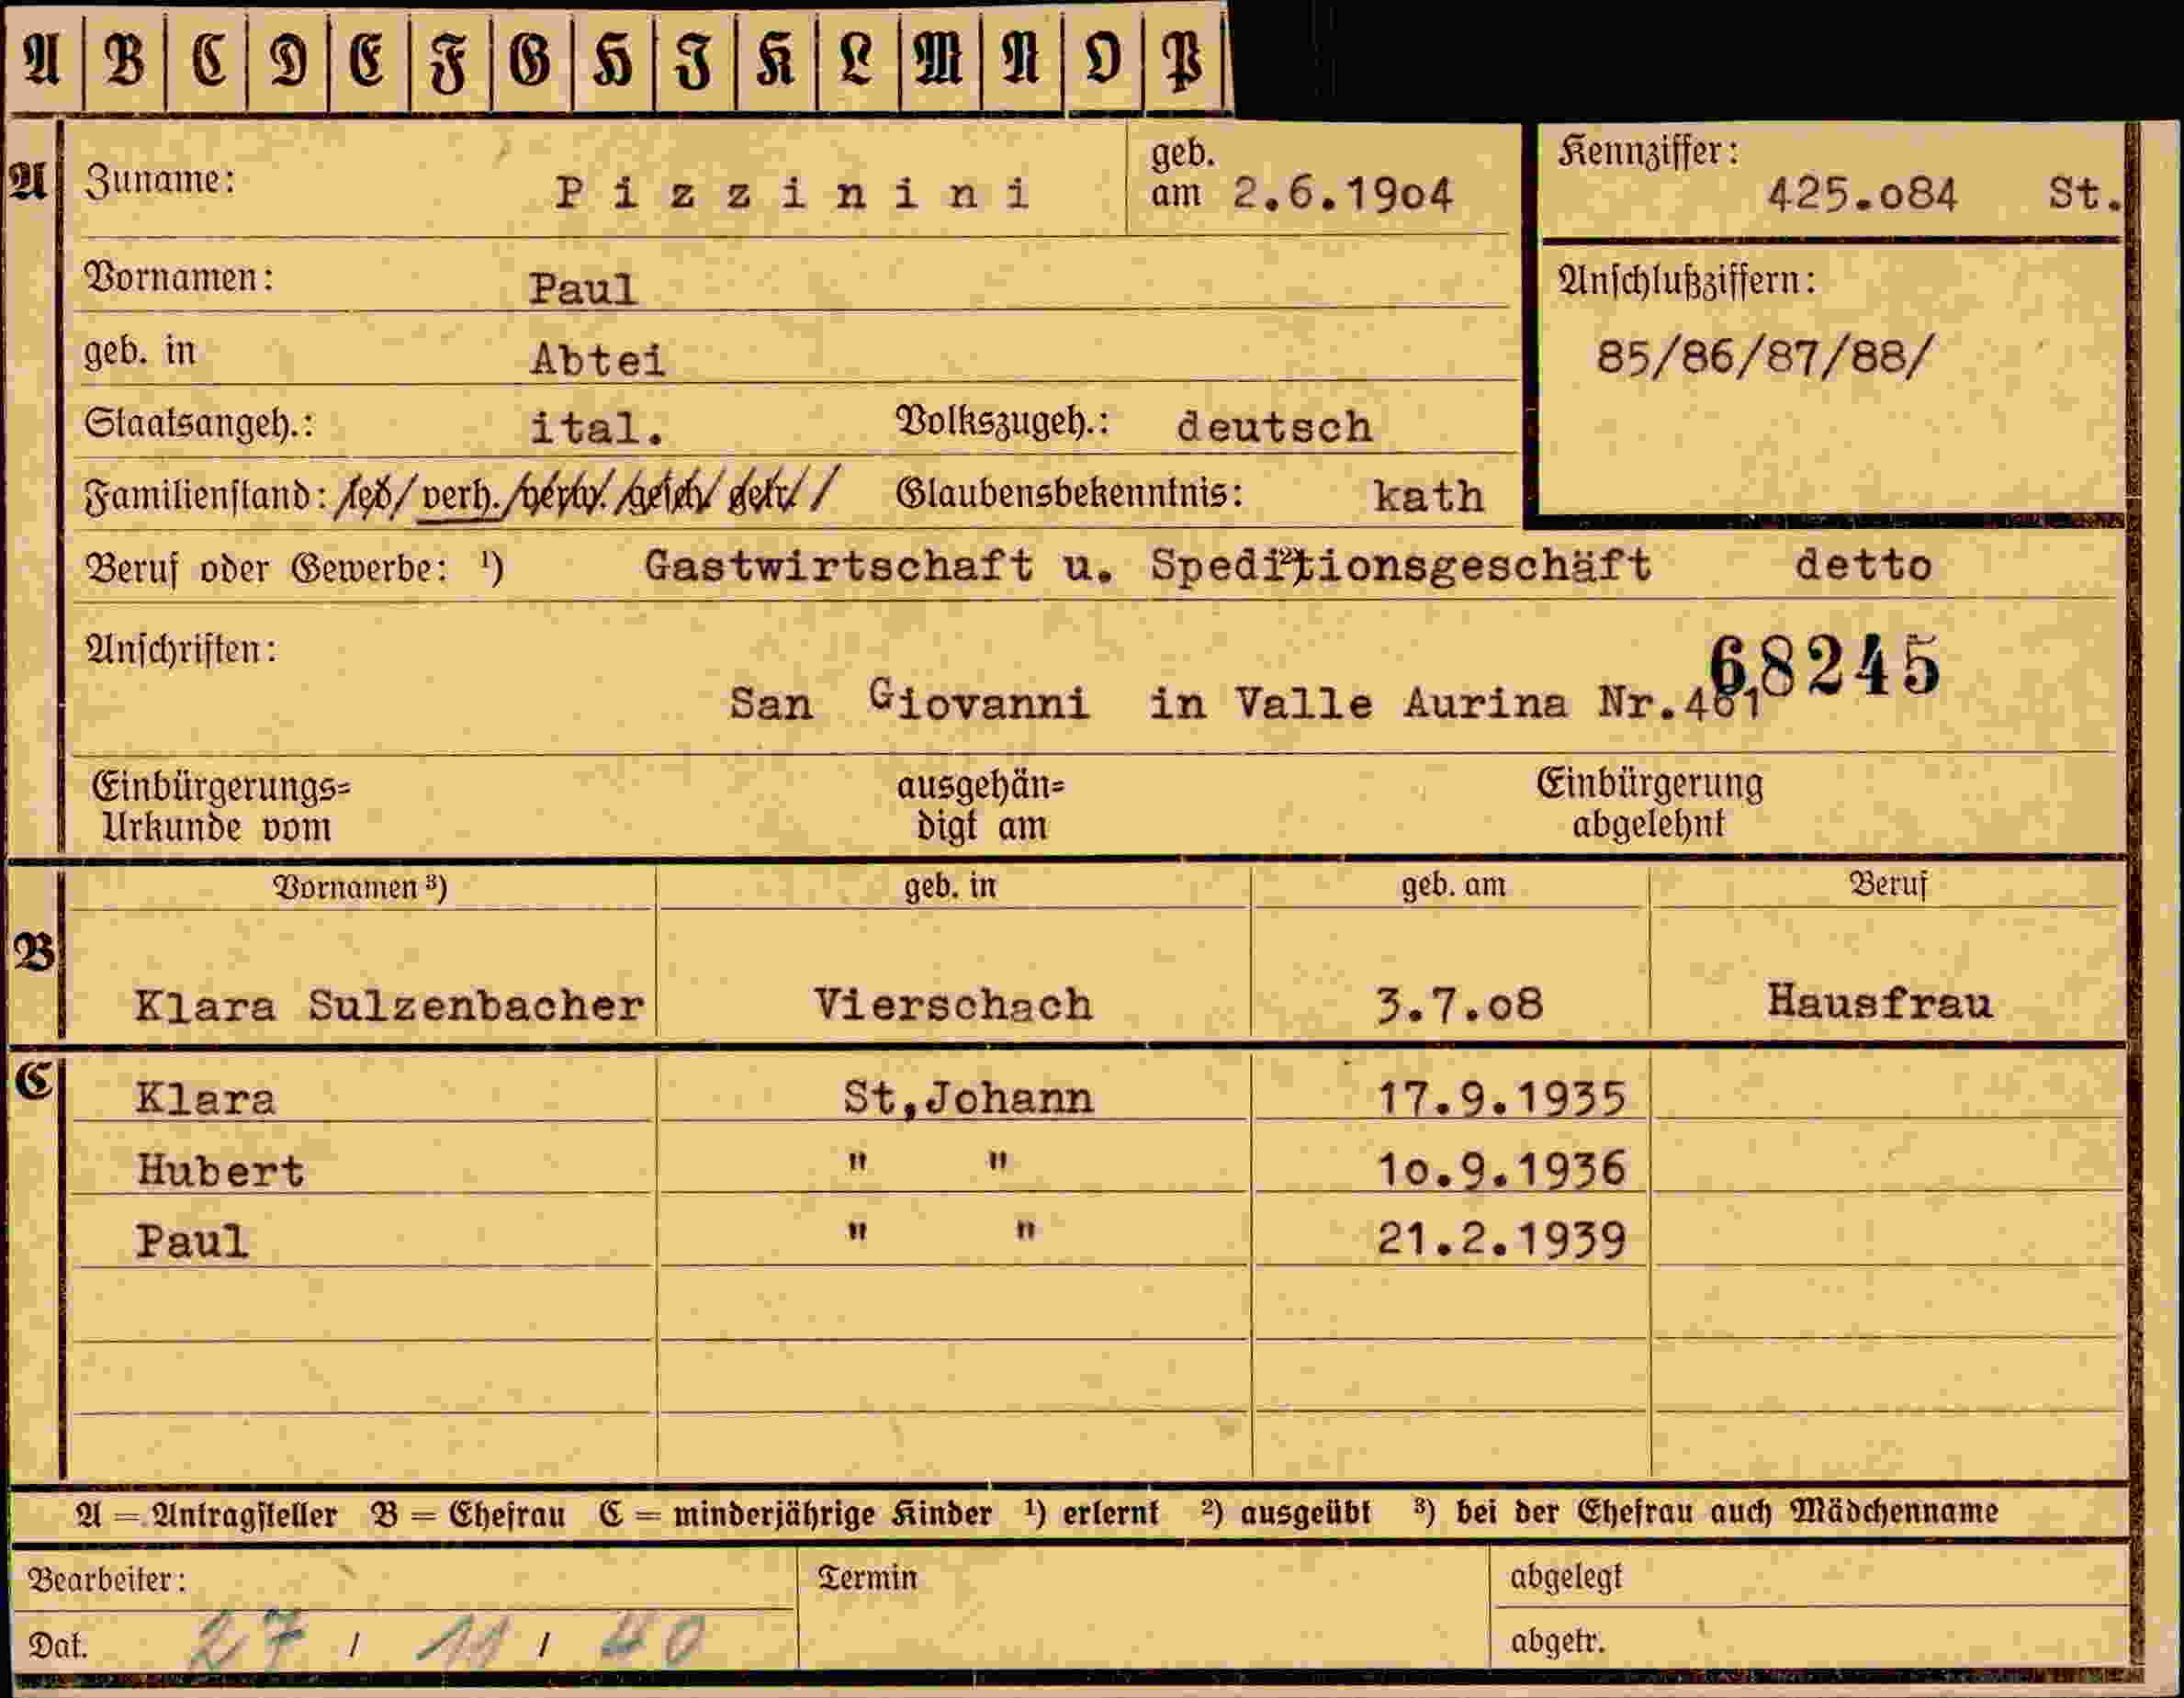 A B C D E F G H I K L M N O P
A Zuname: Pizzinini geb. am 2.6.19o4 Kennziffer: 425.o84 St.
Vornamen: Paul Anschlußziffern:
geb. in Abtei 85/86/87/88/
Staatsangeh.: ital. Volkszugeh.: deutsch
Familienstand: led/ verh. /verw. /gesch/ getr/ / Glaubensbekenntnis: kath
Beruf oder Gewerbe: ¹) Gastwirtschaft u. Speditionsgeschäft ²) detto
Anschriften: 68245
San Giovanni in Valle Aurina Nr.
Einbürgerungs= ausgehän= Einbürgerung
Urkunde vom digt am abgelehnt
Vornamen ³) geb. in geb. am Beruf
B
Klara Sulzenbacher Vierschach 3.7.o8 Hausfrau
C Klara St,Johann 17.9.1935
Hubert " " 1o.9.1936
Paul " " 21.2.1939
A = Antragsteller B = Ehefrau C = minderjährige Kinder ¹) erlernt ²) ausgeübt ³) bei der Ehefrau auch Mädchenname
Bearbeiter: Termin abgelegt
Dat. 27 / 11 / 40 abgetr.